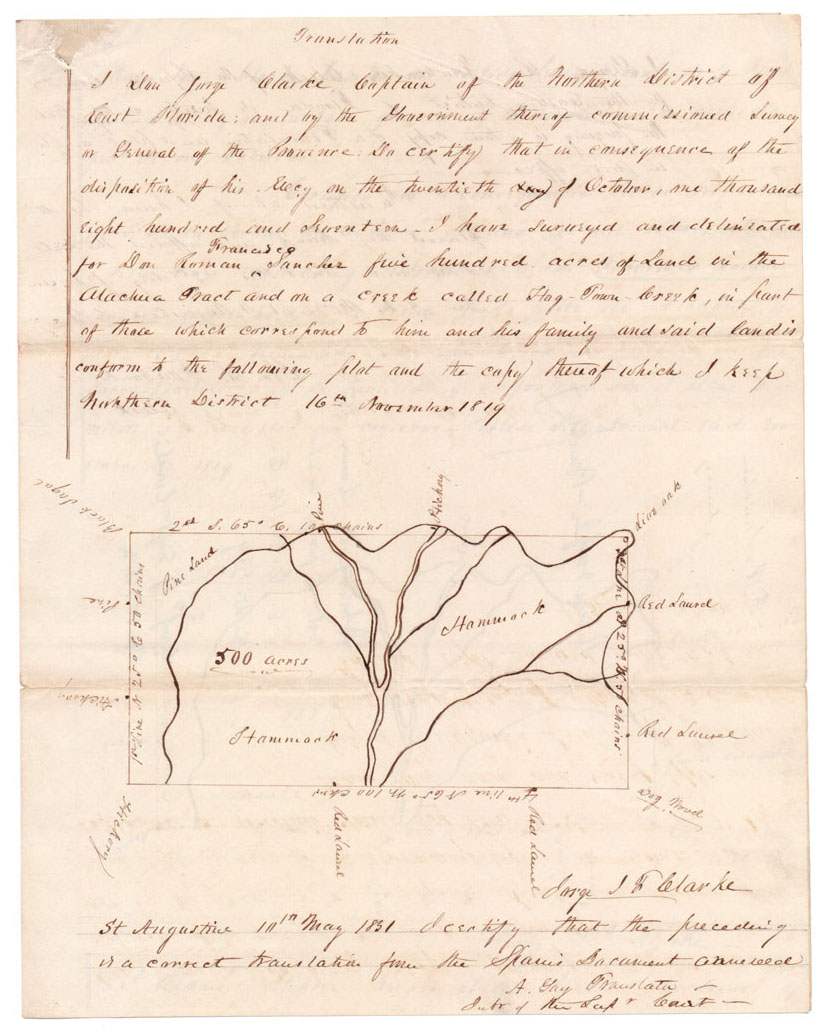 Translation
I Don Jorge Clarke, Captain of the Northern District of
East Florida; and by the Government thereof commissioned Survey
or General of the Province. Do certify that in consequence of the
disposition of his on the twentieth day of October, one thousand
eight hundred and Seventeen - I have surveyed and delineated
Francisco
for Don Roman Sanchez five hundred acres of Land in the
Alachua Tract and on a creek called Hog-Town-Creek, in part
of those which correspond to him and his family and said land is
conform to the following plat and the copy thereof which I keep
Northern District 16th November 1819
Black
2nd S. 65° E. 100 chains
Pine
Hickory
Live oak
Pine Land
Pine
Hickory
1st Line N 25° E 50 chains
500 acres
Hammock
Hammock
N 25° W. 50 chains
Red Laurel
Red Laurel
4th line N 65° W. 100 chains
Hickory
Red Laurel
Red Laurel
Dog Wood
Jorge J F Clarke
St Augustine 10th May 1831 I certify that the preceding
is a correct translation from the Spanis Document annexed
A. Gay Translator
Intr of the Supr Court